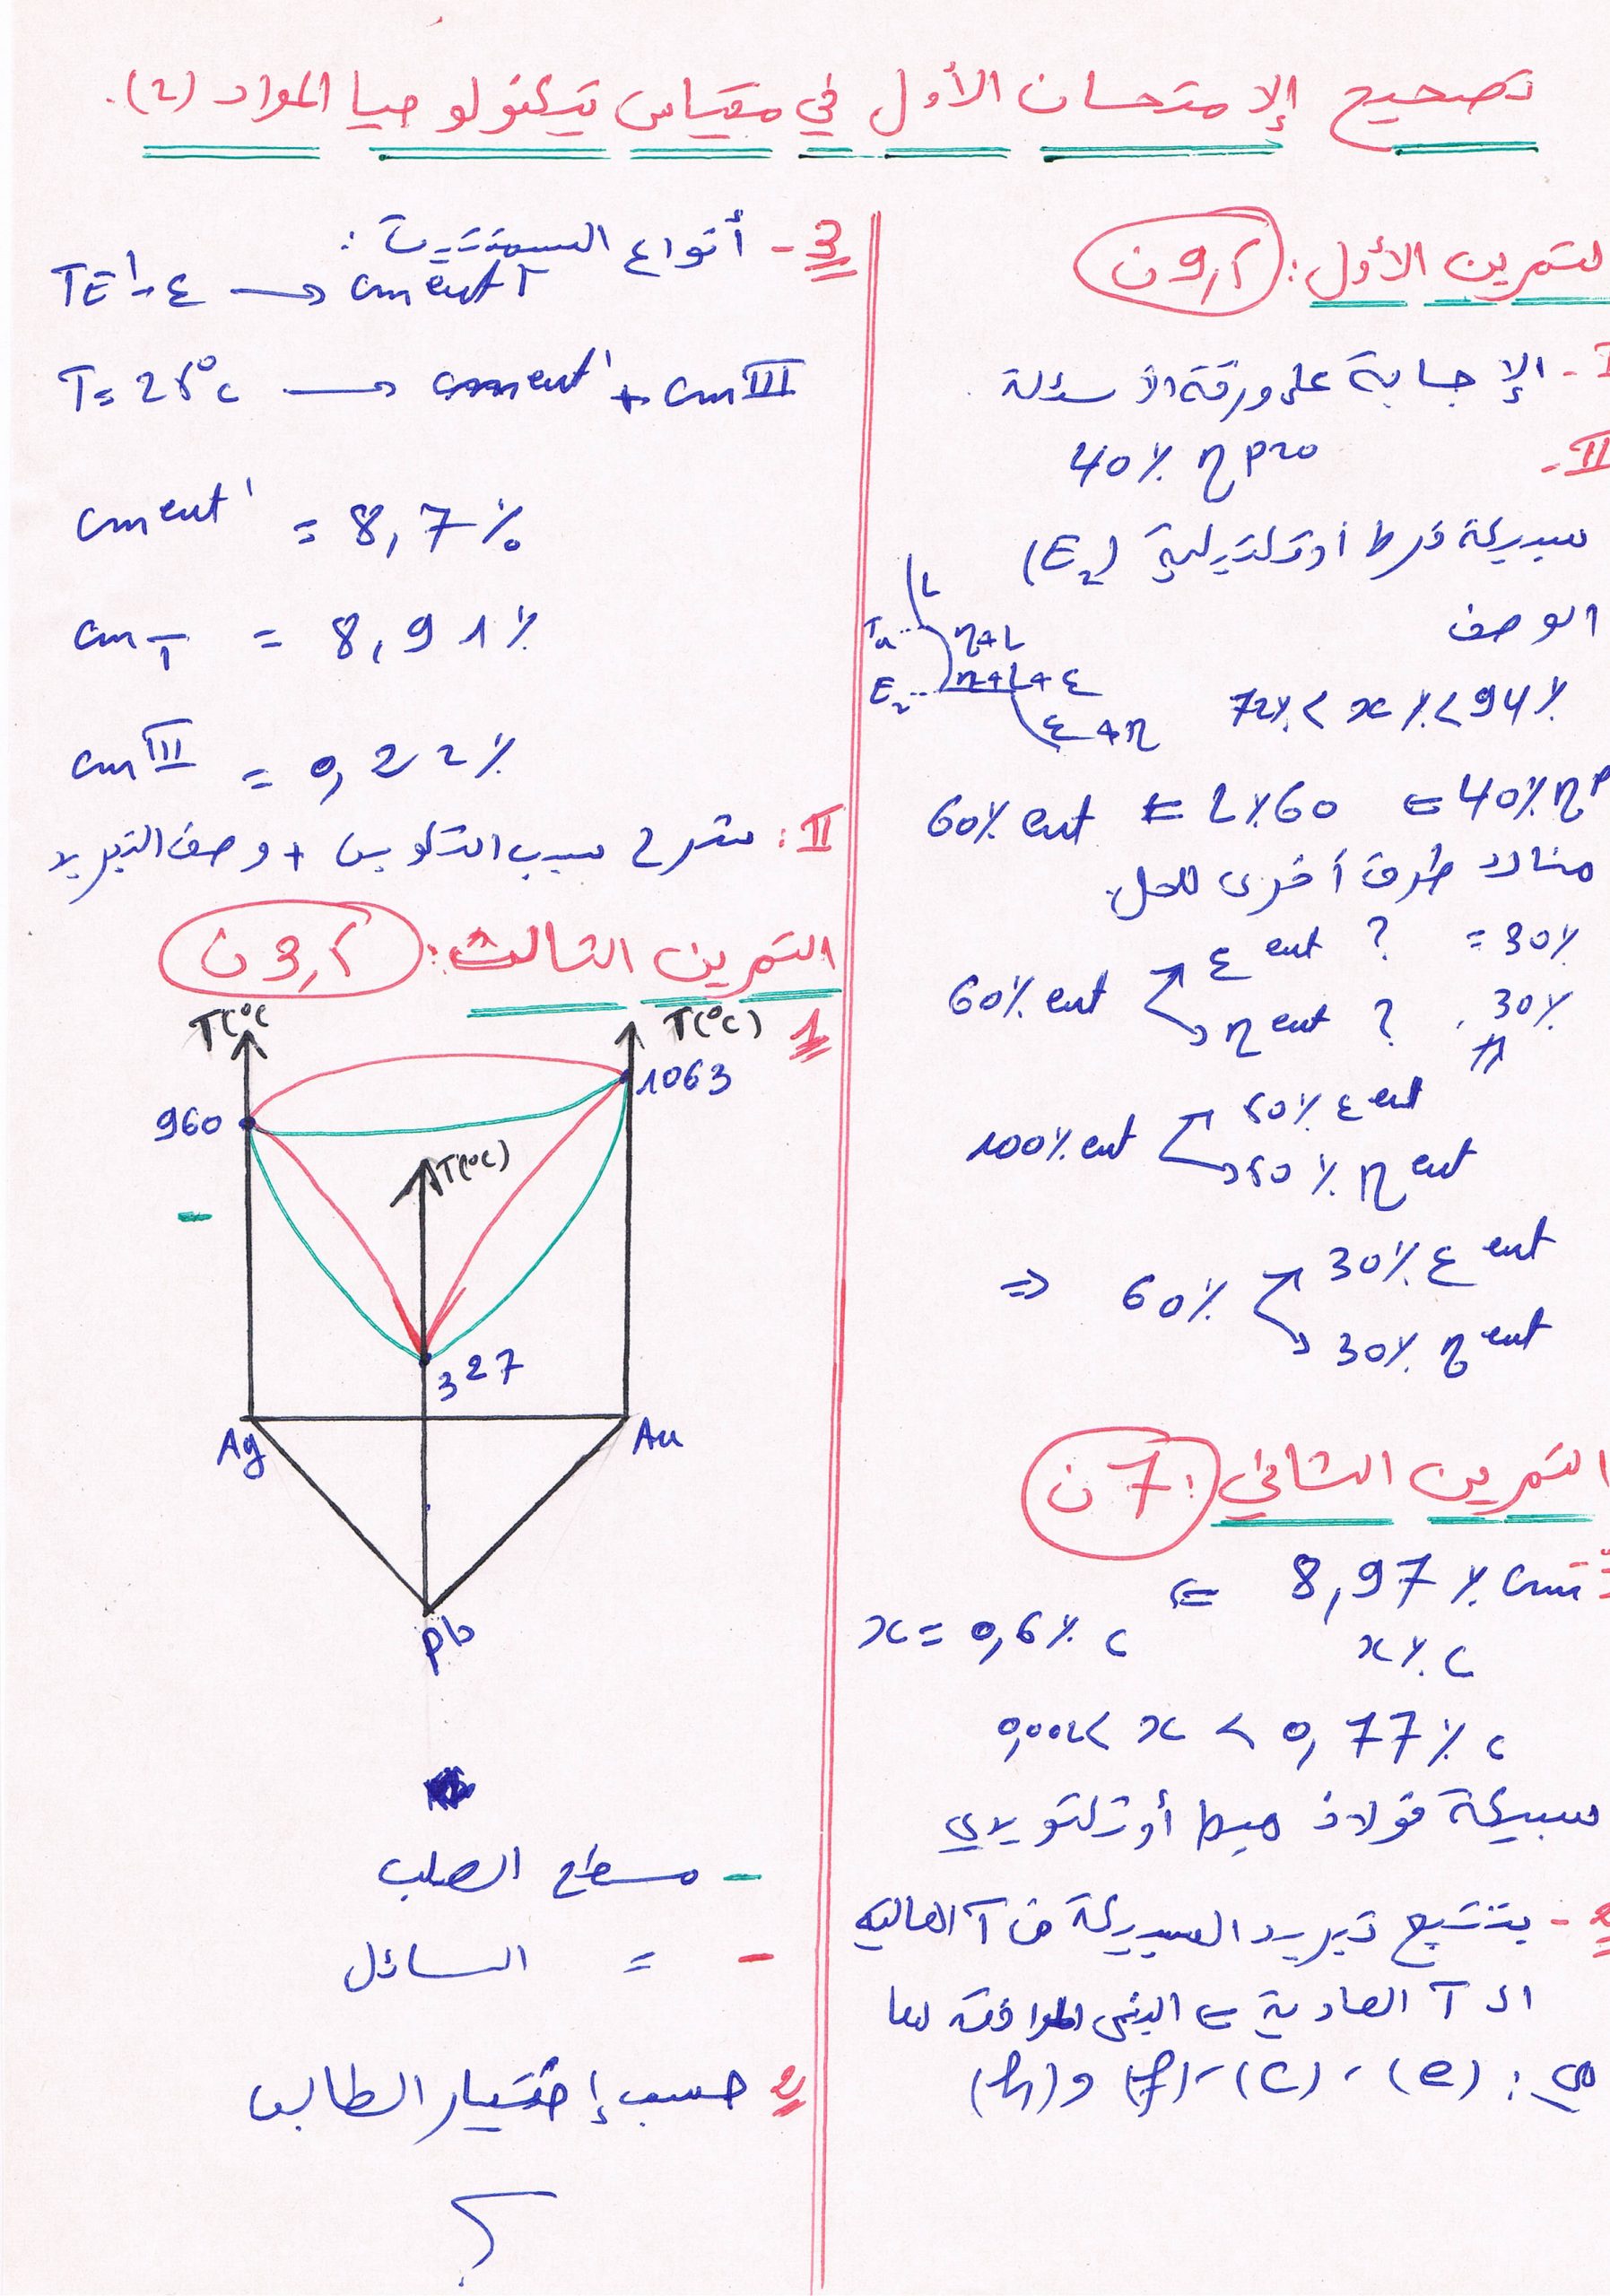 تصحيح الإمتحان الأول في مقياس تكنولوجيا المواد (2).
التمرين الأول: 9,5 ن
I - الإجابة على ورقة الأسئلة
II - 40% η pro
سبيكة فرط أوتكتيكية (E2)
الوصف
L
η+L
η+L+ε
E2
ε+η
72% < x% < 94%
60% eut ⇐ L%60 ⇐ 40% η p
هناك طرق أخرى للحل.
60% eut
ε eut ? = 30%
η eut ? 30%
100% eut
50% ε eut
50% η eut
⇒ 60%
30% ε eut
30% η eut
التمرين الثاني: 7 ن
⇐ 8,97% cm
x = 0,6% c x% c
0,002 < x < 0,77% c
سبيكة فولاذ هيبو أوتكتويدي
2 - بتتبع تبريد السبيكة من T العالية
الى T العادية ⇐ البنى الموافقة لها
هي: (e) ، (c) - (f) و (h)
3 - أنواع السمنتيت:
TE'-ε → cment T
T = 25°c → cment' + cm III
cment' = 8,7%
cm T = 8,91%
cm III = 0,22%
II: شرح سبب التكوين + وصف التبريد
التمرين الثالث: 3,5 ن
1
T(°c
T(°c)
1063
960
T(°c)
327
Ag
Au
Pb
- مسطح الصلب
- = السائل
2 حسب إختيار الطالب